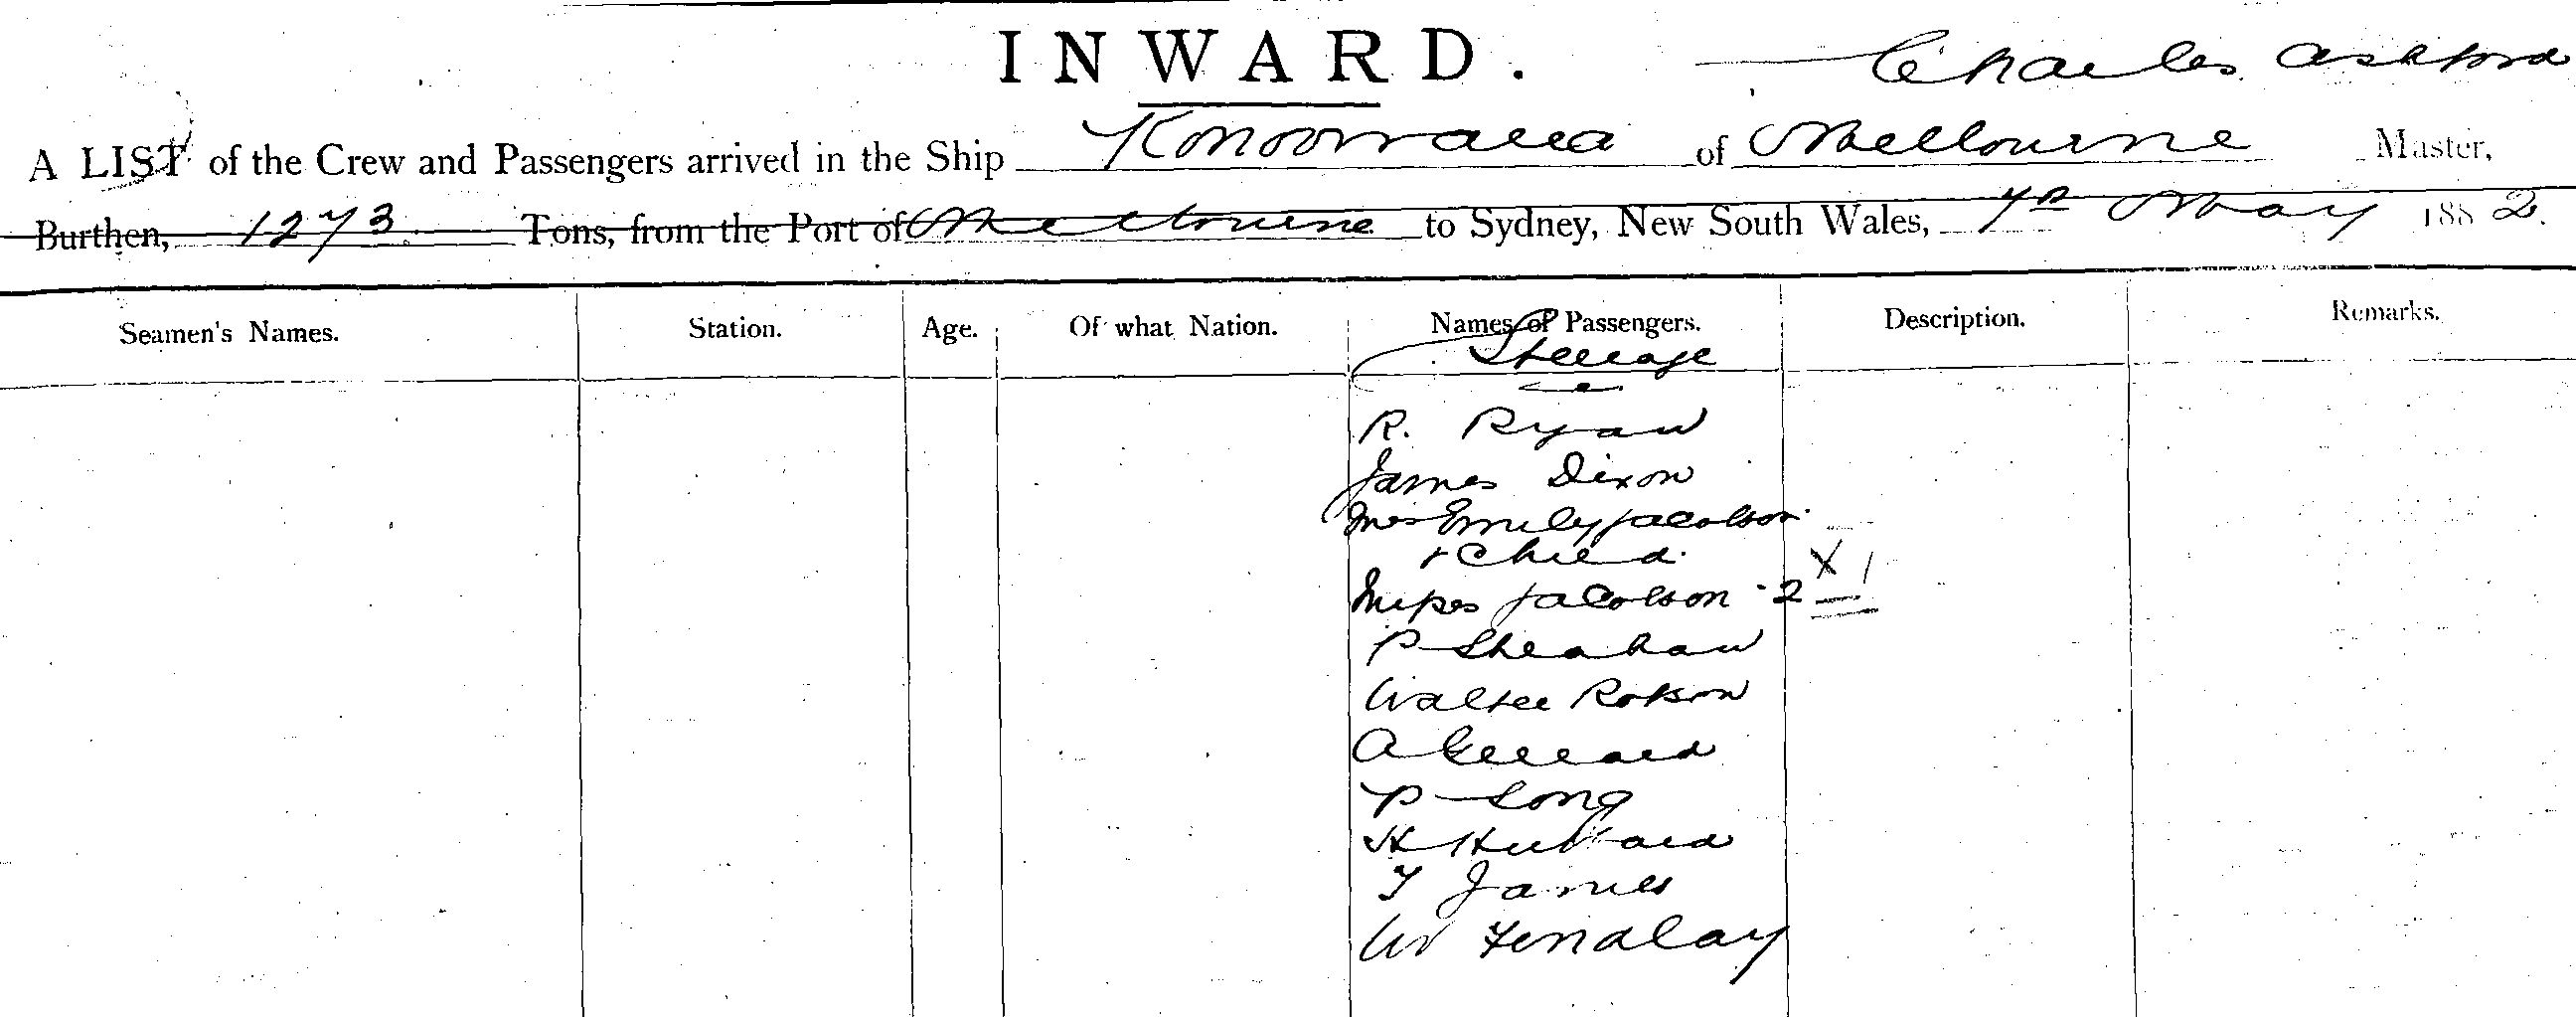 INWARD.
Charles Ashford
A LIST of the Crew and Passengers arrived in the Ship Konoowarra of Melbourne Master,
Burthen, 1273 Tons, from the Port of Melbourne to Sydney, New South Wales, May 1882.
Seamen's Names. Station. Age. Of what Nation. Names of Passengers. Description. Remarks.
Steerage
R. Ryan
James Dixon
Mrs Emily Jacobson
+ Child X 1
Misses Jacobson - 2
P Sheahan
Walter Robson
A Gerrard
P Long
H Hubbard
T James
W Fendlay